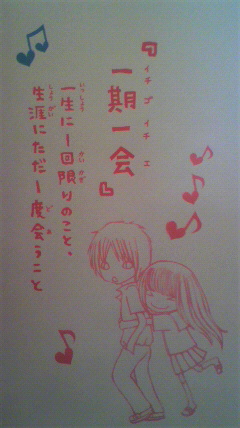 『一期一会』
イチゴイチエ
一生に一回限りのこと、
いっしょう かいかぎ
生涯にただ一度会うこと
しょうがい どあ